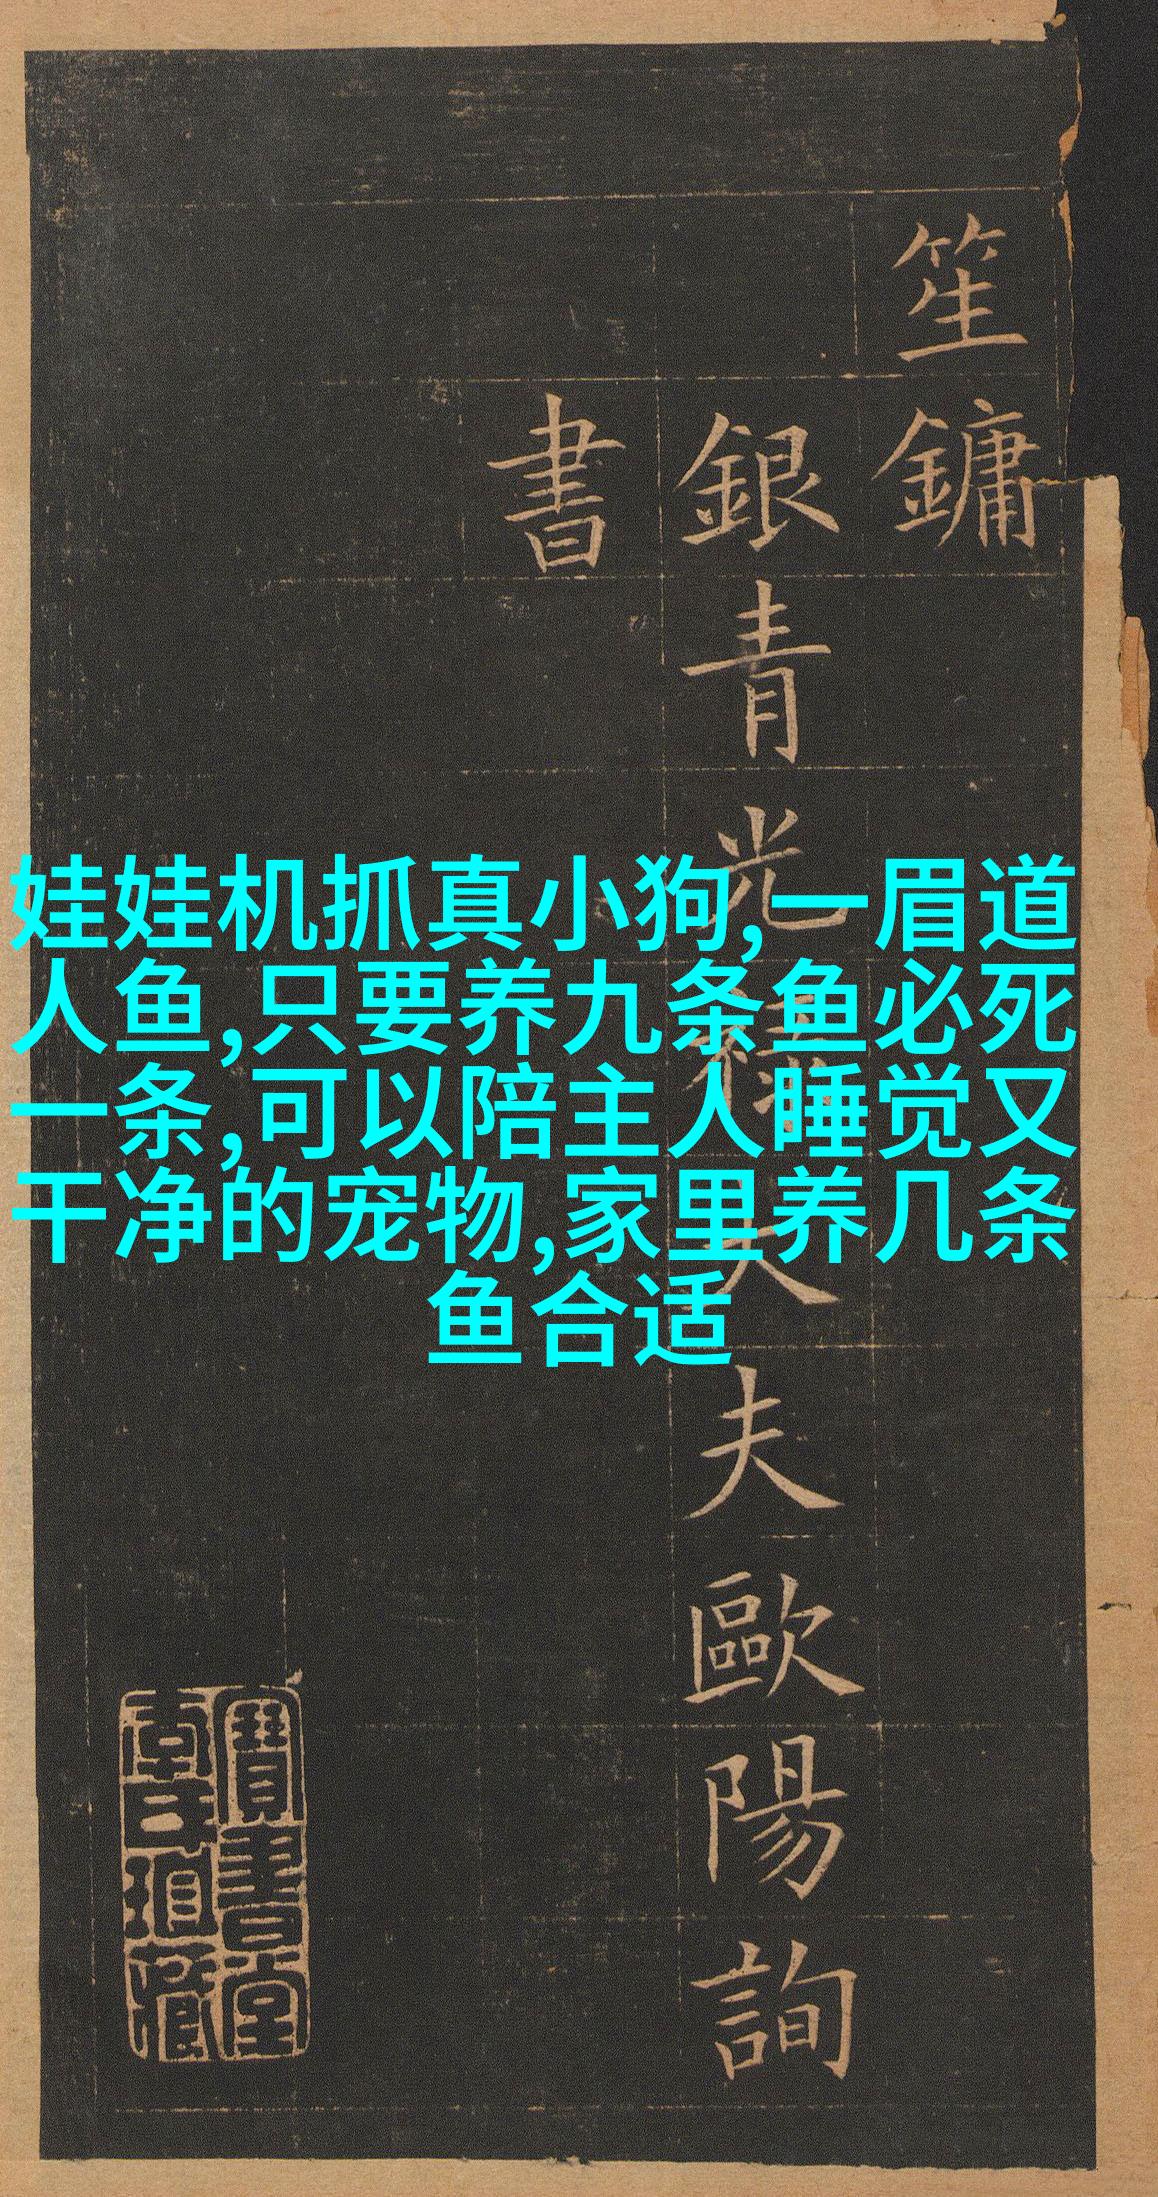 笙鏞
銀青光祿大夫歐陽詢
書
娃娃机抓真小狗,一眉道
人鱼,只要养九条鱼必死
一条,可以陪主人睡觉又
干净的宠物,家里养几条
鱼合适
寶書堂